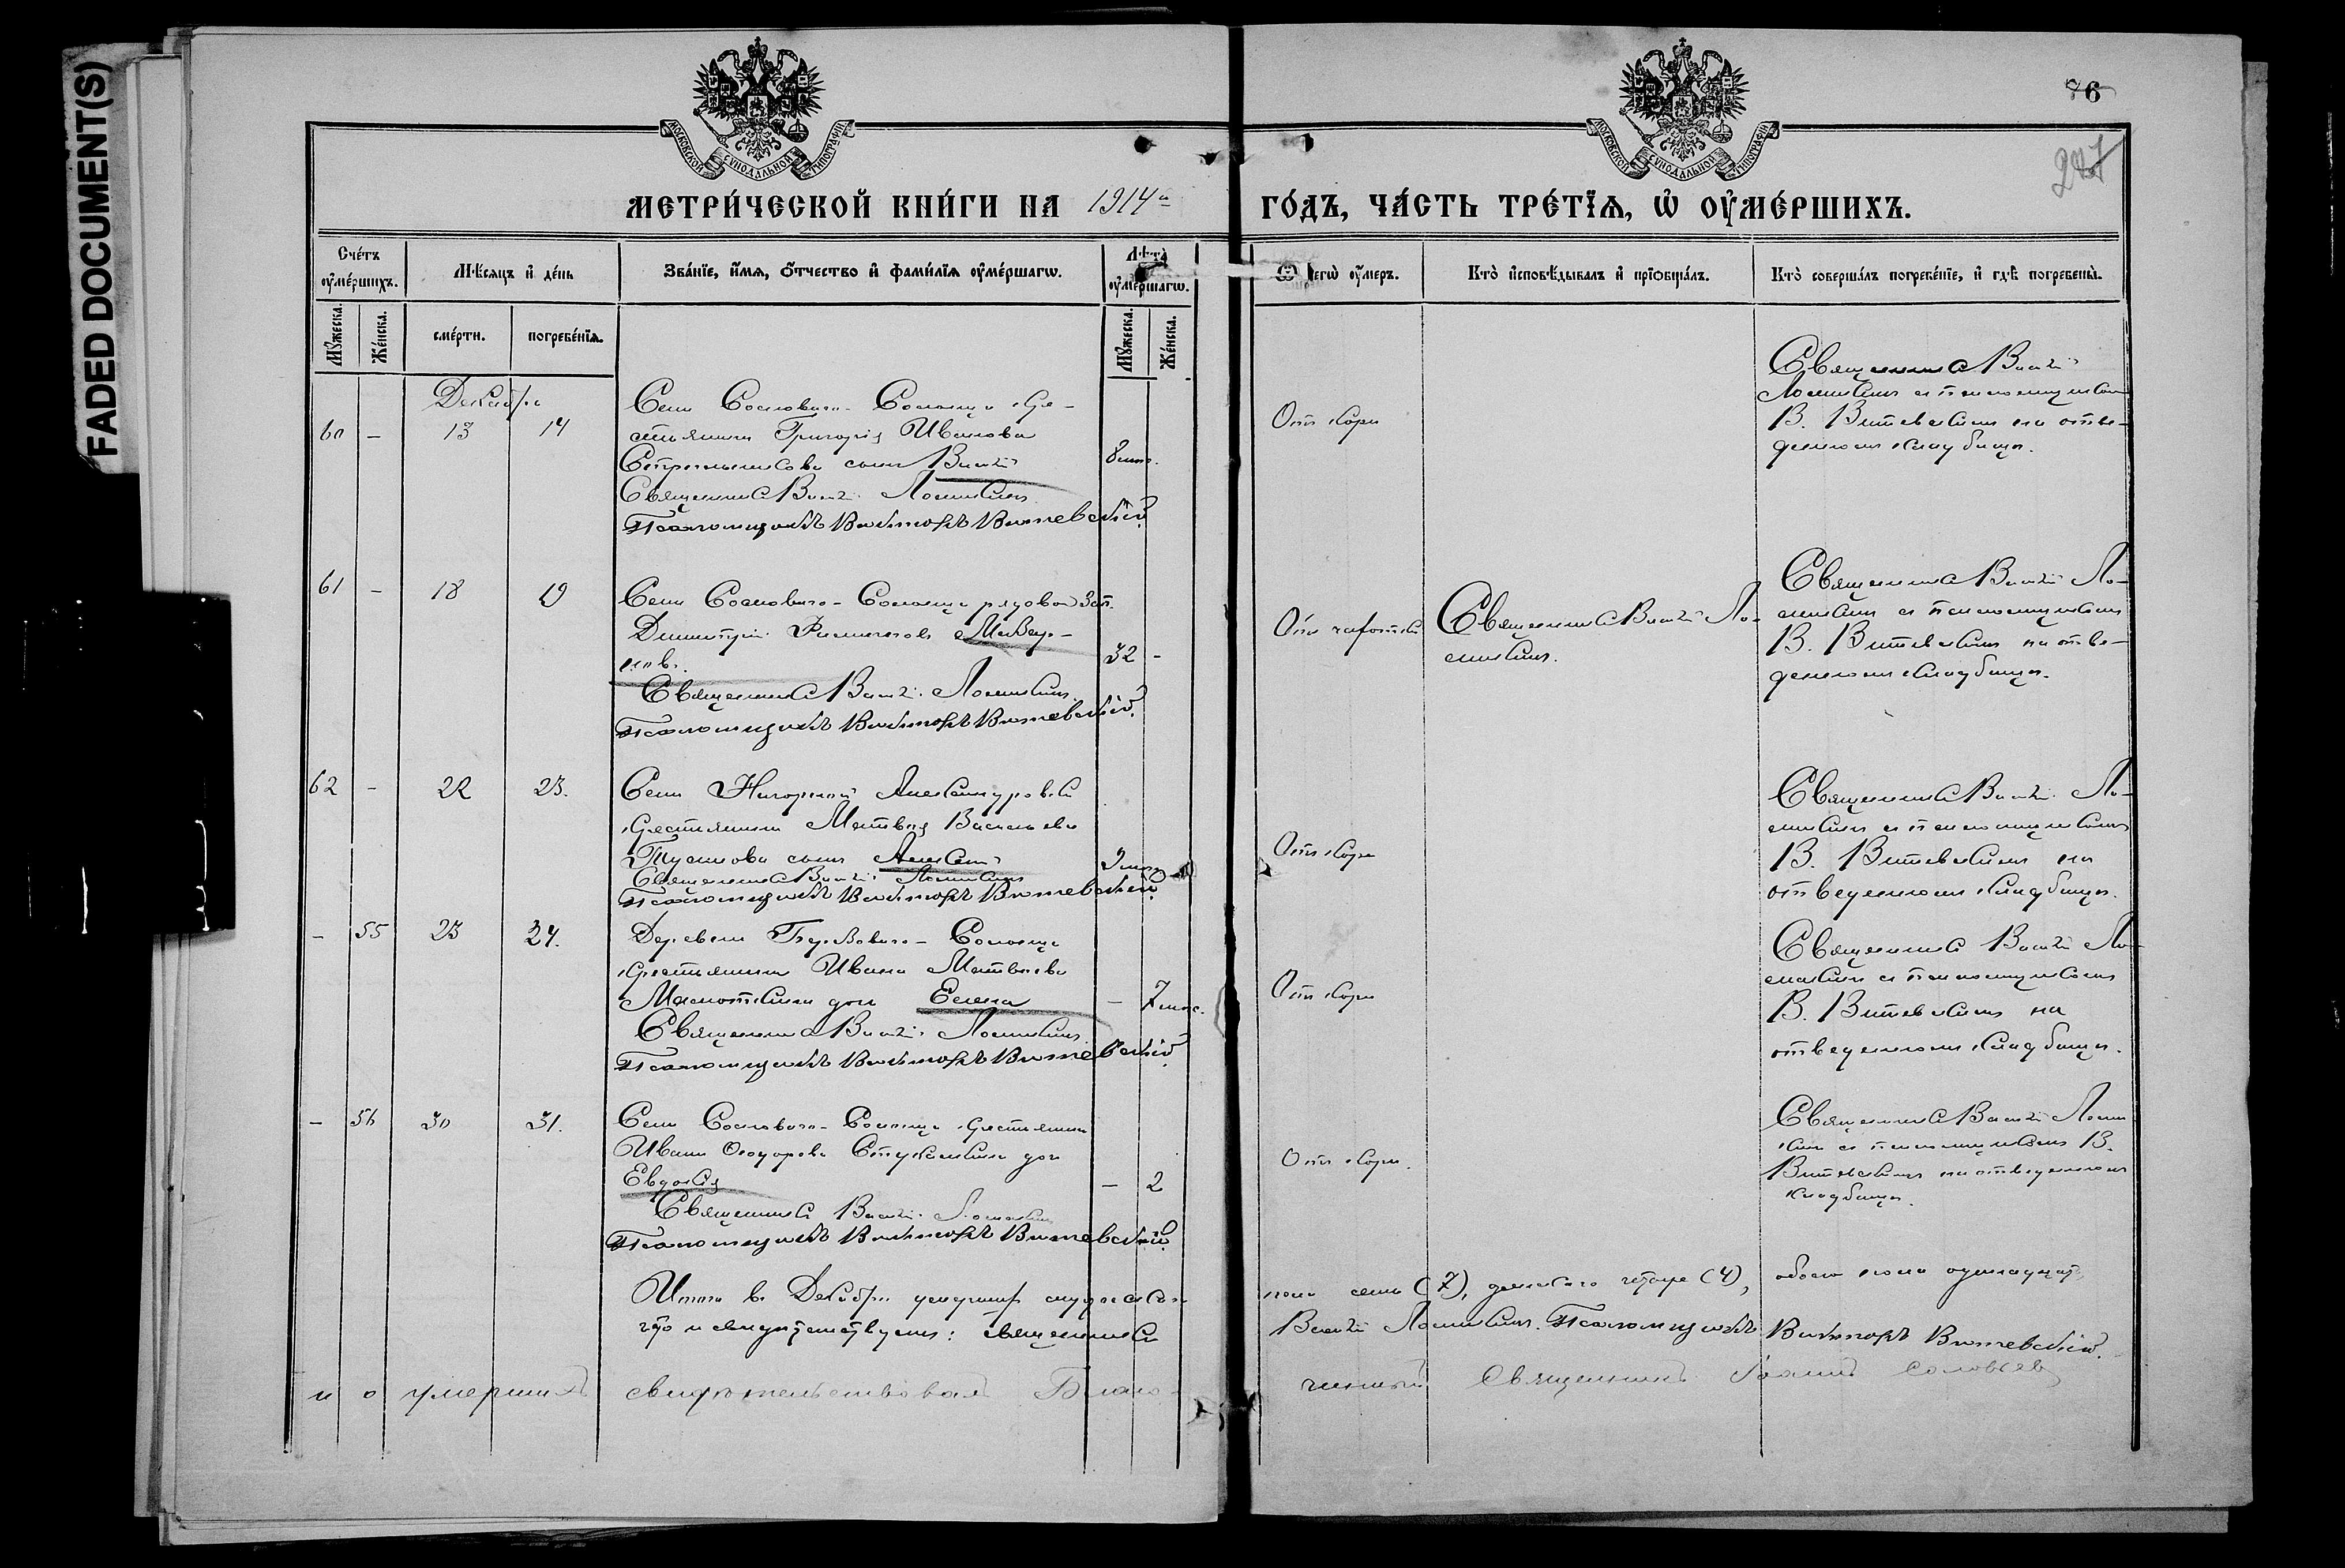 FADED DOCUMENT(S)
МОСКОВСКОЙ СѴНОДАЛЬНОЙ ТИПОГРАФІИ
МОСКОВСКОЙ СѴНОДАЛЬНОЙ ТИПОГРАФІИ
76
247
МЕТРИ́ЧЕСКОЙ КНИ́ГИ НА 1914й ГО́ДЪ, ЧА́СТЬ ТРЕ́ТЇѦ, Ѡ ОУ҆МЕ́РШИХЪ.
Сче́тъ оу҆ме́ршихъ.
Мꙋ́жеска.
Же́нска.
Мѣ́сяцъ и҆ де́нь
сме́рти.
погребе́нїѧ.
Зва́нїе, и҆́мѧ, ѻ҆́тчество и҆ фами́лїѧ оу҆ме́ршагѡ.
Лѣ́та оу҆ме́ршагѡ.
Мꙋ́жеска.
Же́нска.
Ѿ чегѡ̀ оу҆́меръ.
Кто̀ и҆сповѣ́дывалъ и҆ прїѡбща́лъ.
Кто̀ соверша́лъ погребе́нїе, и҆ гдѣ̀ погребены̀.
Декабрь
60 - 13 14
Села Сосноваго-Солонца кре-
стьянина Григорія Иванова
сынъ Василій
8 мѣс.
Священникъ Василій Ломакинъ
Псаломщикъ Викторъ Витевскій.
Отъ кори
Священникъ Василій
Ломакинъ съ псаломщикомъ
В. Витевскимъ на отве-
денномъ кладбищѣ.
61 - 18 19
Села Сосноваго-Солонца рядовой зап.
Димитрій Филиппов
32 -
Священникъ Василій Ломакинъ.
Псаломщикъ Викторъ Витевскій.
Отъ чахотки
Священникъ Василій Ло-
макинъ.
Священникъ Василій Ло-
макинъ съ псаломщикомъ
В. Витевскимъ на отве-
денномъ кладбищѣ.
62 - 22 23.
Села Александровки
крестьянина Матвѣя Васильева
сынъ Алексѣй
Священникъ Василій Ломакинъ
Псаломщикъ Викторъ Витевскій.
Отъ кори
Священникъ Василій Ло-
макинъ съ псаломщикомъ
В. Витевскимъ на
отведенномъ кладбищѣ.
- 55 23 24.
Деревни Березоваго-Солонца
крестьянина Ивана Матвѣева
дочь Елена
- 7 мѣс.
Священникъ Василій Ломакинъ
Псаломщикъ Викторъ Витевскій.
Отъ кори
Священникъ Василій Ло-
макинъ съ псаломщикомъ
В. Витевскимъ на
отведенномъ кладбищѣ.
- 56 30 31.
Села Сосноваго-Солонца крестьянина
Ивана Ѳеодорова дочь
Евдокія
- 2
Священникъ Василій Ломакинъ
Псаломщикъ Викторъ Витевскій.
Отъ кори.
Священникъ Василій Лома-
кинъ съ псаломщикомъ В.
Витевскимъ на отведенномъ
кладбищѣ.
Итого въ Декабрѣ умершихъ мужескаго пола семь (7), женскаго четыре (4), обоего пола одиннадцать
что и свидѣтельствуемъ: священникъ Василій Ломакинъ. Псаломщикъ Викторъ Витевскій.
и о умершихъ свидѣтельствовалъ Благочинный Священникъ Іоаннъ Соловьевъ